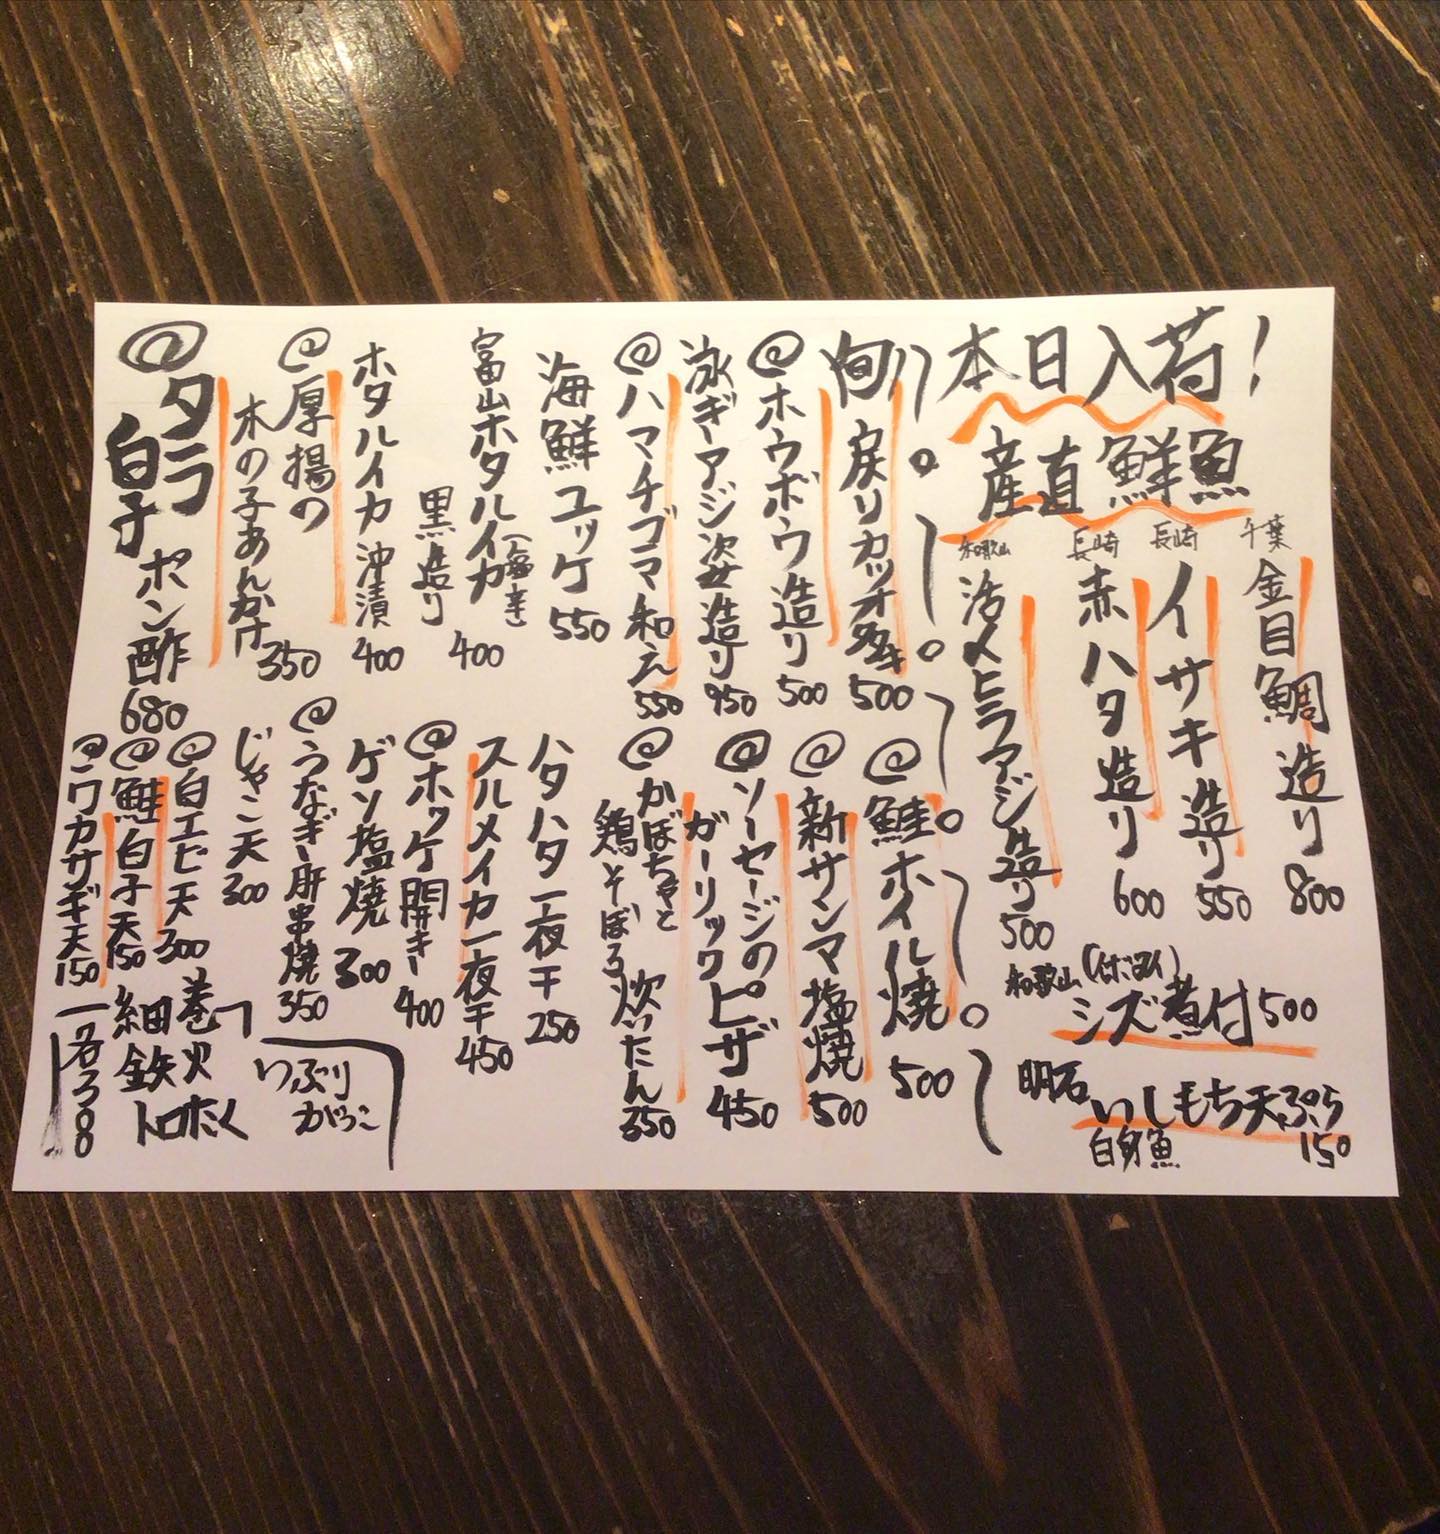 本日入荷!
産直鮮魚
千葉
金目鯛造り 800
長崎
イサキ造り 550
長崎
赤ハタ造り 600
和歌山
活〆ヒラアジ造り 500
和歌山 (イボダイ)
シズ煮付 500
明石
いしもち天ぷら 150
白身魚
旬
戻りカツオ 500
@ホウボウ造り 500
泳ぎアジ姿造り 950
@ハマチゴマ和え 550
海鮮ユッケ 550
富山ホタルイカ(塩辛)
黒造り 400
ホタルイカ沖漬 400
@厚揚の
木の子あんかけ 350
@タラ
白子
ポン酢 680
@鮭ホイル焼 500
@新サンマ塩焼 500
@ソーセージの
ガーリックピザ 450
@かぼちゃと
鶏そぼろ炊いたん 350
ハタハタ一夜干 250
スルメイカ一夜干 450
@ホッケ開き 400
ゲソ塩焼 300
@うなぎ肝串焼 350
じゃこ天 300
@白エビ天 300
@鮭白子天 150
@ワカサギ天 150
細巻
鉄火
トロたく
いぶり
がっこ
各300